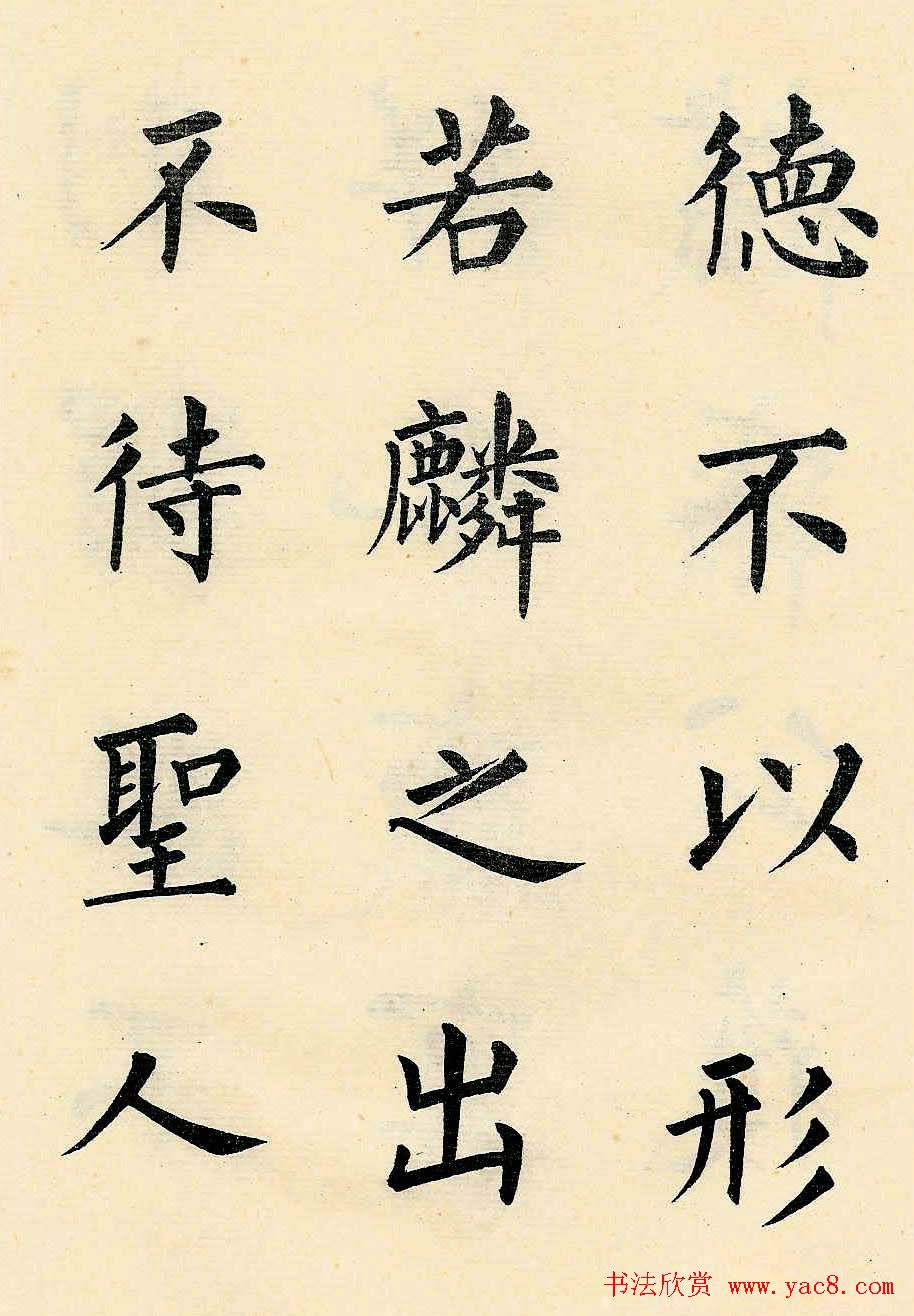 德不以形
若麟之出
不待聖人
书法欣赏 www.yac8.com